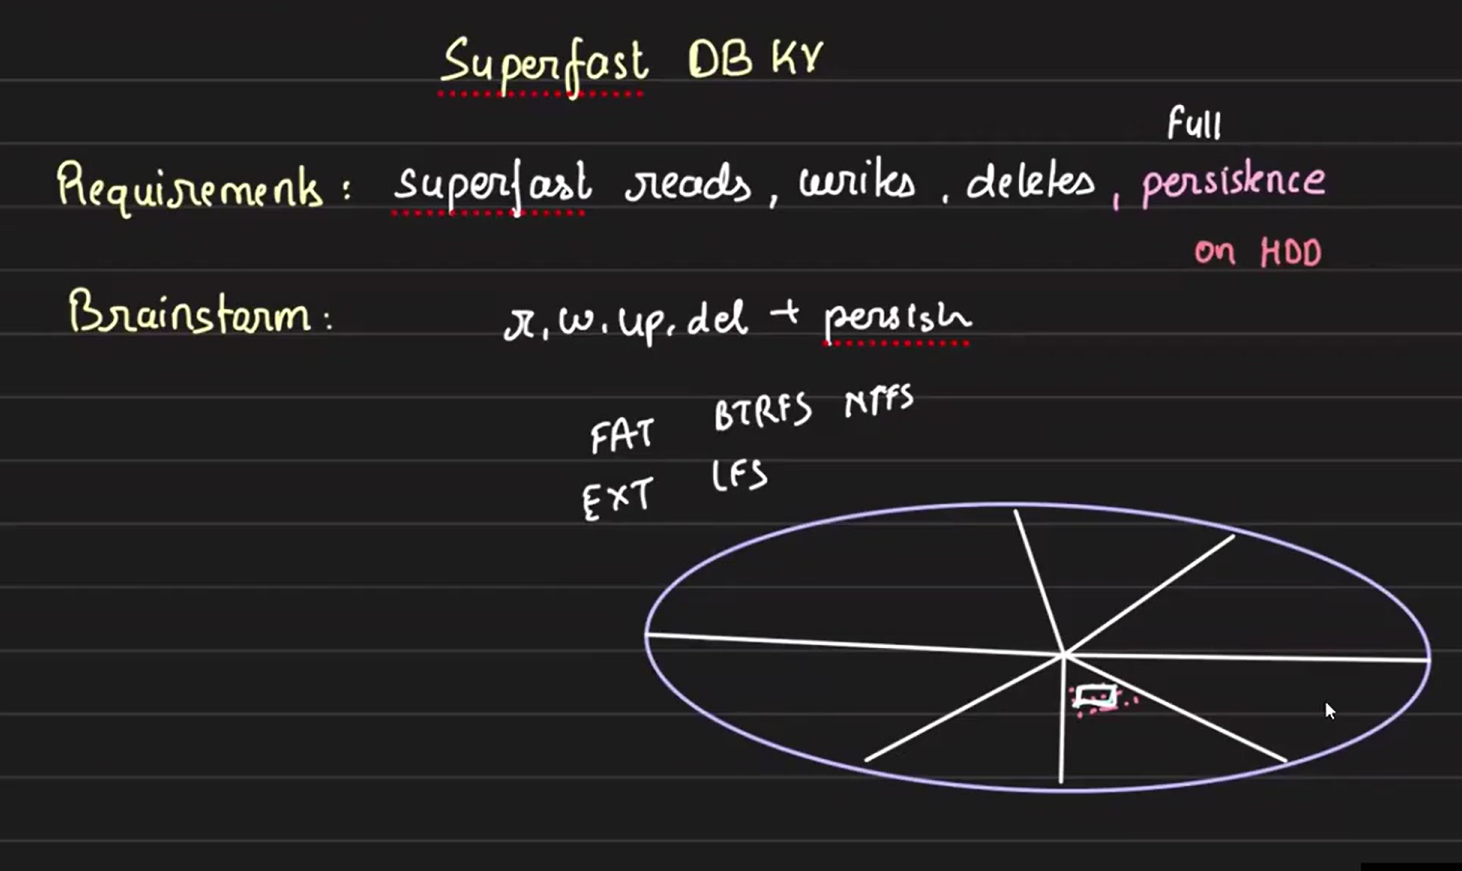 Superfast DB KV
Full
Requirements: superfast reads, writes, deletes, persistence
on HDD
Brainstorm: r, w, up, del + persish
FAT BTRFS NTFS
EXT LFS